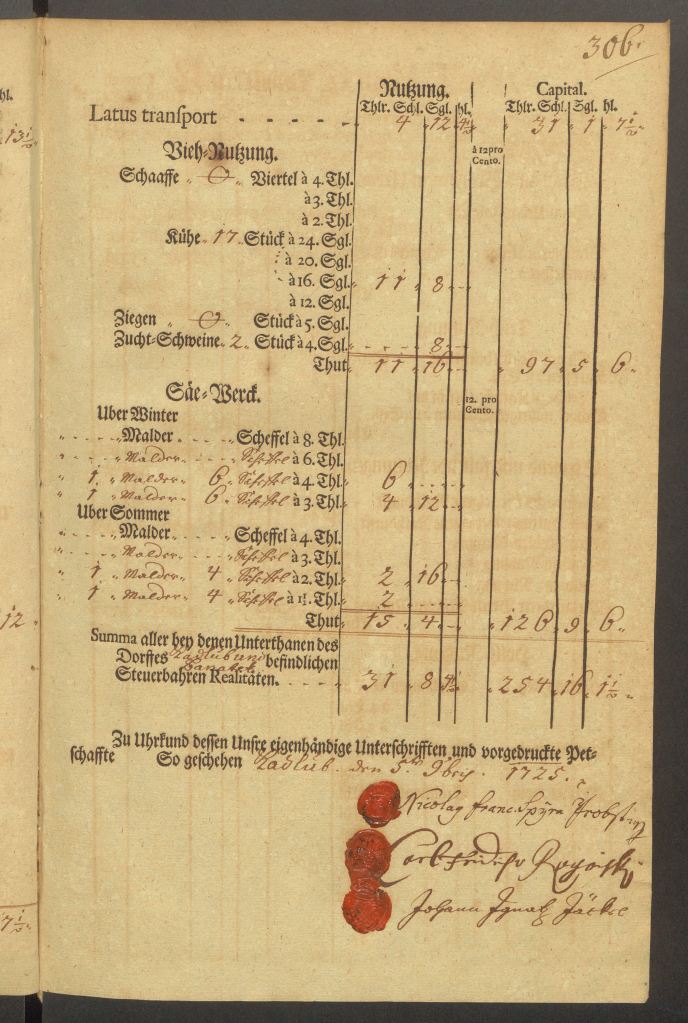 hl.
13½
12
7½
306.
Nutzung. Capital.
Thlr. Schl. Sgl. hl. Thlr. Schl. Sgl. hl.
Latus transport - - - - - 4 12 4½ 31 1 7½
Vieh-Nutzung. à 12 pro Cento.
Schaaffe 0 Viertel à 4. Thl.
à 3. Thl.
à 2. Thl.
Kühe 17 Stück à 24. Sgl.
à 20. Sgl.
à 16. Sgl. 11 8
à 12. Sgl.
Ziegen 0 Stück à 5. Sgl.
Zucht-Schweine 2 Stück à 4. Sgl. 8
Thut 11 16 97 5 6
Säe-Werck. 12. pro Cento.
Uber Winter
Malder Scheffel à 8. Thl.
Malder Scheffel à 6. Thl.
1 Malder 6 Scheffel à 4 Thl. 6
1 Malder 6 Scheffel à 3. Thl. 4 12
Uber Sommer
Malder Scheffel à 4. Thl.
Malder Scheffel à 3. Thl.
1 Malder 4 Scheffel à 2. Thl. 2 16
1 Malder 4 Scheffel à 1½. Thl. 2
Thut 15 4 126 9 6
Summa aller bey denen Unterthanen des
Dorffes Zadlub und befindlichen
Steuerbahren Realitäten. 31 8 4½ 254 16 1½
Zu Uhrkund dessen Unsre eigenhändige Unterschrifften und vorgedruckte Pet-
schaffte So geschehen Zadlub. den 5ten 9bris. 1725.
Nicolag Franc. Spyra Probst
Carl Fridrich
Johann Ignatz Jäckel